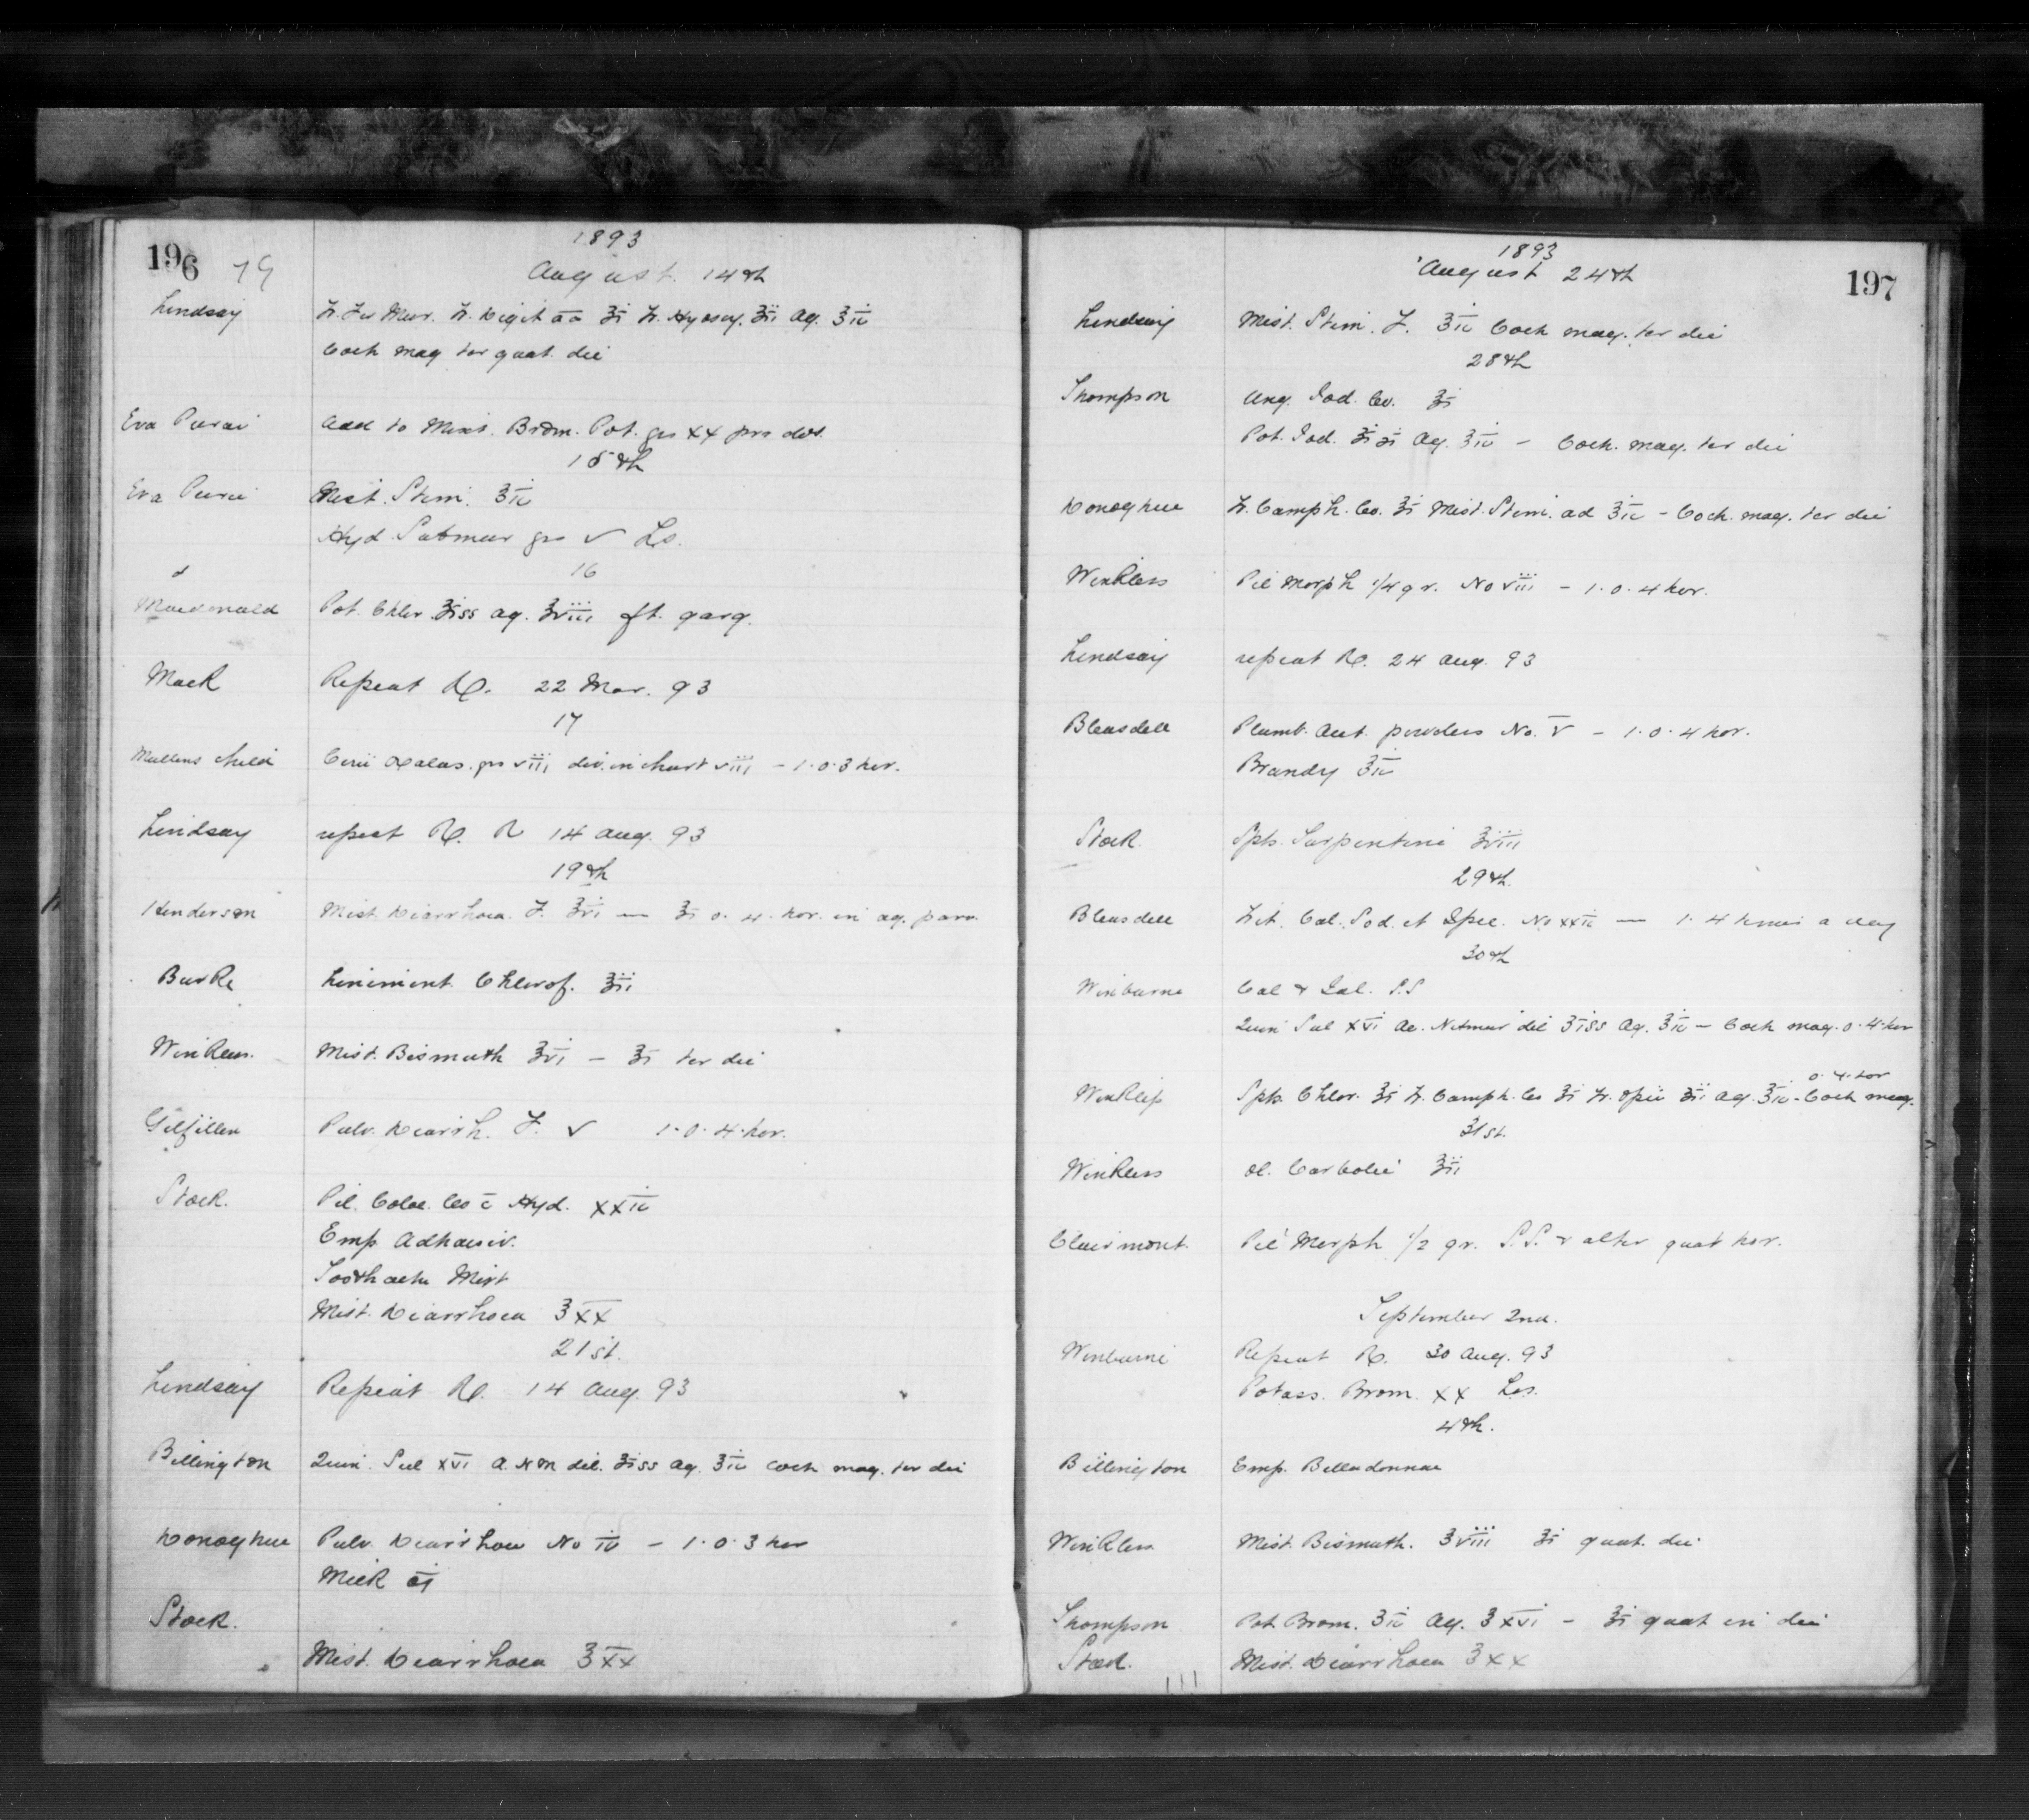 196 79
1893
August 14th
Lindsay Tr. Fer Mur. Tr. Digit āā ℥i Tr. Hyoscy. ℥ii Aq. ℥iv
Coch mag ter quat. die
Eva Add to Mixt. Brom. Pot. grs XX pro dos.
15th
Eva Mist. Stim. ℥iv
Hyd Submur grs V Ls.
16
Macdonald Pot. Chlor ʒiss aq. ℥viii ft. garg.
Mack Repeat Rx. 22 Mar. 93
17
Mullens child Cerii Oxalas. grs viii div. in chart viii - 1.0.3 hor.
Lindsay repeat Rx. 14 Aug. 93
19th
Henderson Mist Diarrhoea. F. ℥vi — ʒi o. 4. hor. in aq. parv.
Burke Liniment. Chlorof. ℥ii
Winkless. Mist. Bismuth ℥vi - ʒi ter die
Gilfillen Pulv. Diarrh. F. V 1.0.4. hor.
Stock. Pil. Coloc. Co c̄ Hyd. XXIV
Emp Adhaesiv.
Toothache Mixt
Mist. Diarrhoea ℥XX
21st.
Lindsay Repeat Rx. 14 Aug. 93
Billington Quin. Sul XVI A. N M dil. ʒiss aq. ℥iv Coch mag. ter die
Donaghue Pulv. Diarrhoea No IV - 1.0.3 hor
Milk Oi
Stock.
Mist. Diarrhoea ℥XX
1893
August 24th
197
Lindsay Mist. Stim. F. ℥iv Coch mag. ter die
28th
Thompson Ung. Iod. Co. ℥i
Pot. Iod. Aq. ℥iv - Coch. mag. ter die
Donaghue Tr. Camph. Co. ℥i Mist. Stim. ad ℥iv - Coch. mag. ter die
Winkless Pil Morph 1/4 gr. No viii - 1.0.4 hor.
Lindsay repeat Rx. 24 Aug. 93
Bleasdell Plumb. Acet. powders No. V - 1.0.4 hor.
Brandy ℥iv
Stock. Spts. Turpentine ℥viii
29th.
Bleasdell Trit. Cal. Sod. et Ipec. No XXIV — 1. 4 times a day
30th
Winburne Cal & Jal. S.S
Quin Sul XVI Ac. Nitmur dil ʒiss Aq. ℥iv - Coch mag. o. 4. hor
o. 4. hor
Spts. Chlor. ℥i Tr. Camph. Co ℥i Tr. Opii ʒii aq. ℥iv - Coch mag.
31st.
Winkless Ol. Carbolic ℥ii
Clairmont. Pil Morph 1/2 gr. S.S. & alter quat hor.
September 2nd.
Winburne Repeat Rx. 30 Aug. 93
Potass. Brom. XX Ls.
4th.
Billington Emp. Belladonnae
Winkless Mist. Bismuth. ℥viii ʒi quat. die
Thompson Pot. Brom. ʒiv Aq. ℥xvi - ℥i quat in die
Stock. Mist. Diarrhoea ℥XX